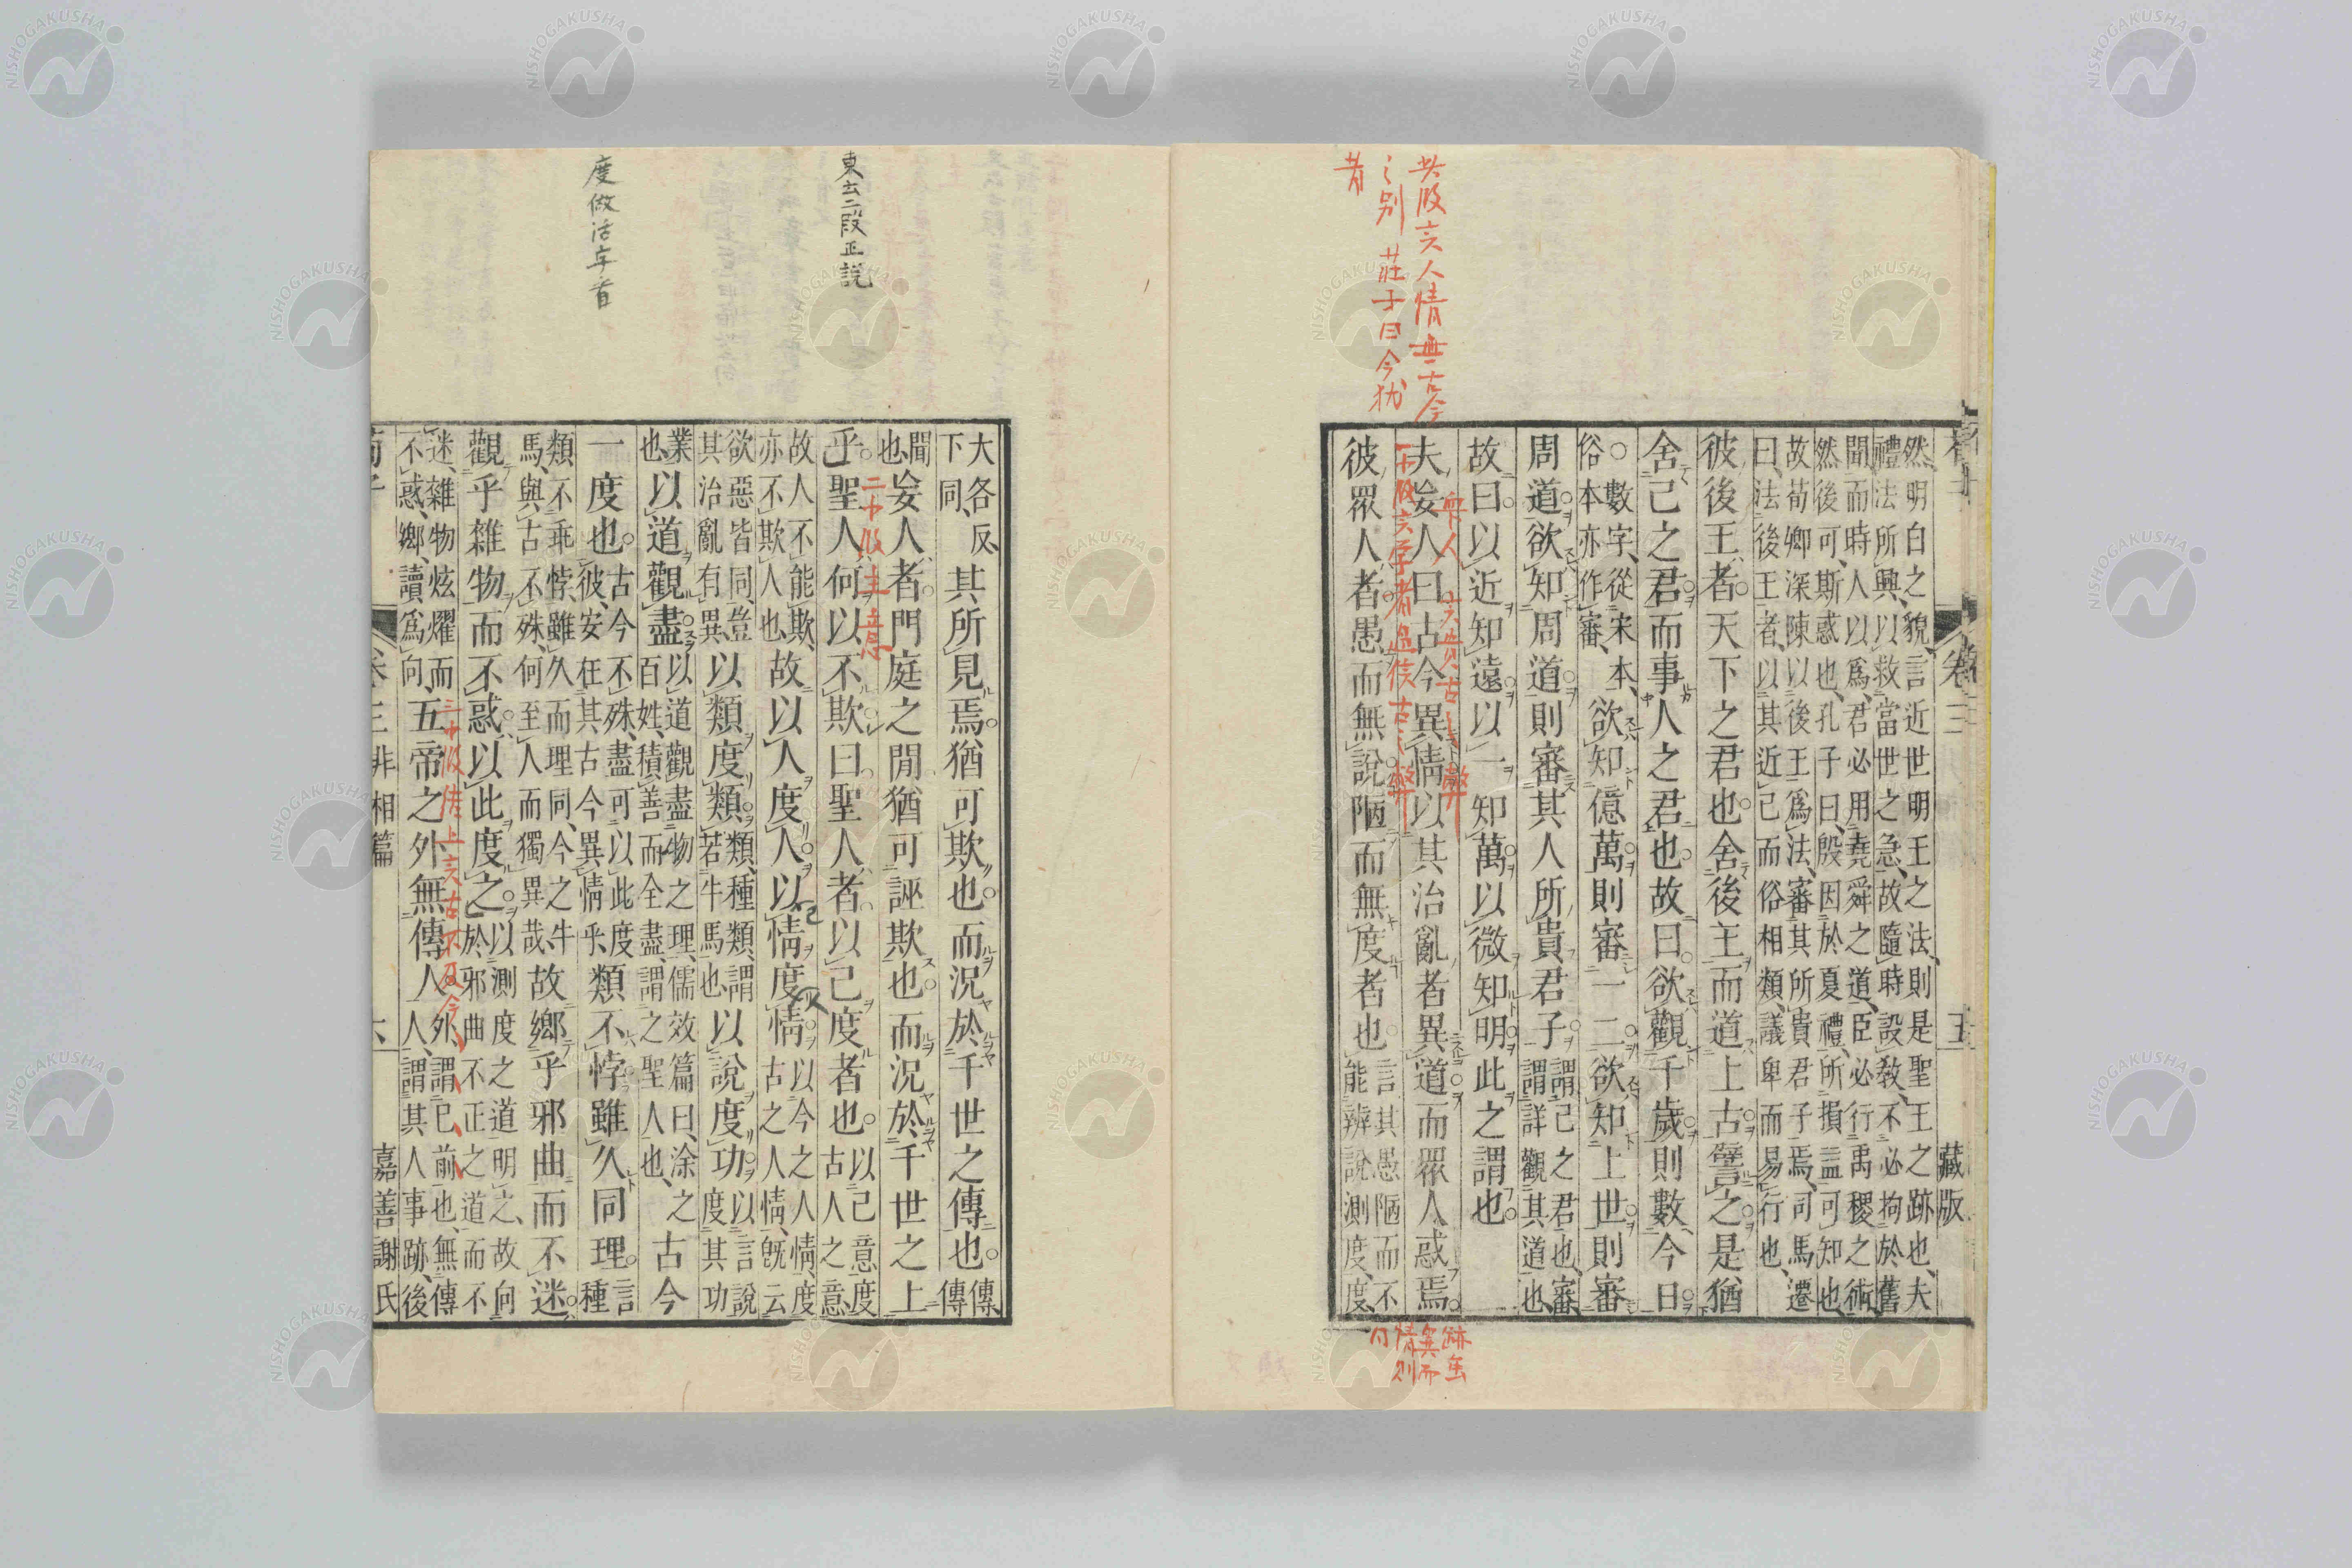 卷三 五 藏版
然、明白之貌、言近世明王之法、則是聖王之跡也、夫
禮法所興、以救當世之急、故隨時設敎、不必拘於舊
聞而時人以爲、君必用堯舜之道、臣必行禹稷之術、
然後可、斯惑也、孔子曰、殷因於夏禮、所損益可知也
故荀卿深陳以後王爲法、審其所貴君子焉、司馬遷
曰、法後王者、以其近己而俗相類、議卑而易行也、
彼後王者天下之君也舍後王而道上古譬之是猶
舍己之君而事人之君也故曰欲觀千歲則數今日
○數字、從宋本、俗本亦作審、欲知億萬則審一二欲知上世則審
周道欲知周道則審其人所貴君子謂己之君也、審謂詳觀其道也、
故曰以近知遠以一知萬以微知明此之謂也
夫妄人曰古今異情以其治亂者異道而眾人惑焉
彼眾人者愚而無說陋而無度者也言其愚陋而不能辨說測度、度、
共段言人情無古今
之別 莊子曰今猶
昔
跡虽
異而
情則
同
大各反、下同、其所見焉猶可欺也而況於千世之傳也傳、傳
聞也、妄人者門庭之閒猶可誣欺也而況於千世之上
乎聖人何以不欺曰聖人者以己度者也以己意度古人之意、
故人不能欺、亦不欺人也、故以人度人以情度情以今之人情、度古之人情、旣云
欲惡皆同、豈其治亂有異、以類度類類、種類、謂若牛馬也以說度功以言說度其功
業也、以道觀盡以道觀盡物之理、儒效篇曰、涂之百姓、積善而全盡、謂之聖人也、古今
一度也古今不殊、盡可以此度彼、安在其古今異情乎、類不悖雖久同理言種
類不乖悖、雖久而理同、今之牛馬與古不殊、何至人而獨異哉、故鄉乎邪曲而不迷
觀乎雜物而不惑以此度之以測度之道明之、故向於邪曲不正之道而不
迷、雜物炫燿而不惑、鄉、讀爲向、五帝之外無傳人外、謂已前也、無傳人、謂其人事跡、後
卷三非相篇 六 嘉善謝氏
東云二段正說
度做活字看
二十段主意